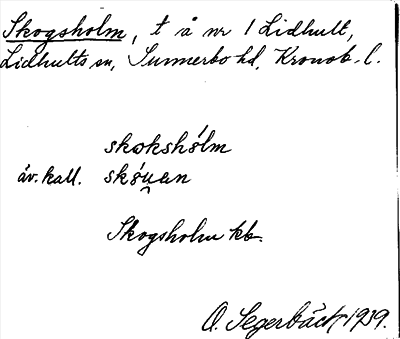 Skogsholm, t å nr 1 Lidhult,
Lidhults sn, Sunnerbo hd, Kronob. l.
skokshólm
äv. kall. skóu̯an
Skogsholm kb.
O. Segerbäck 1939.